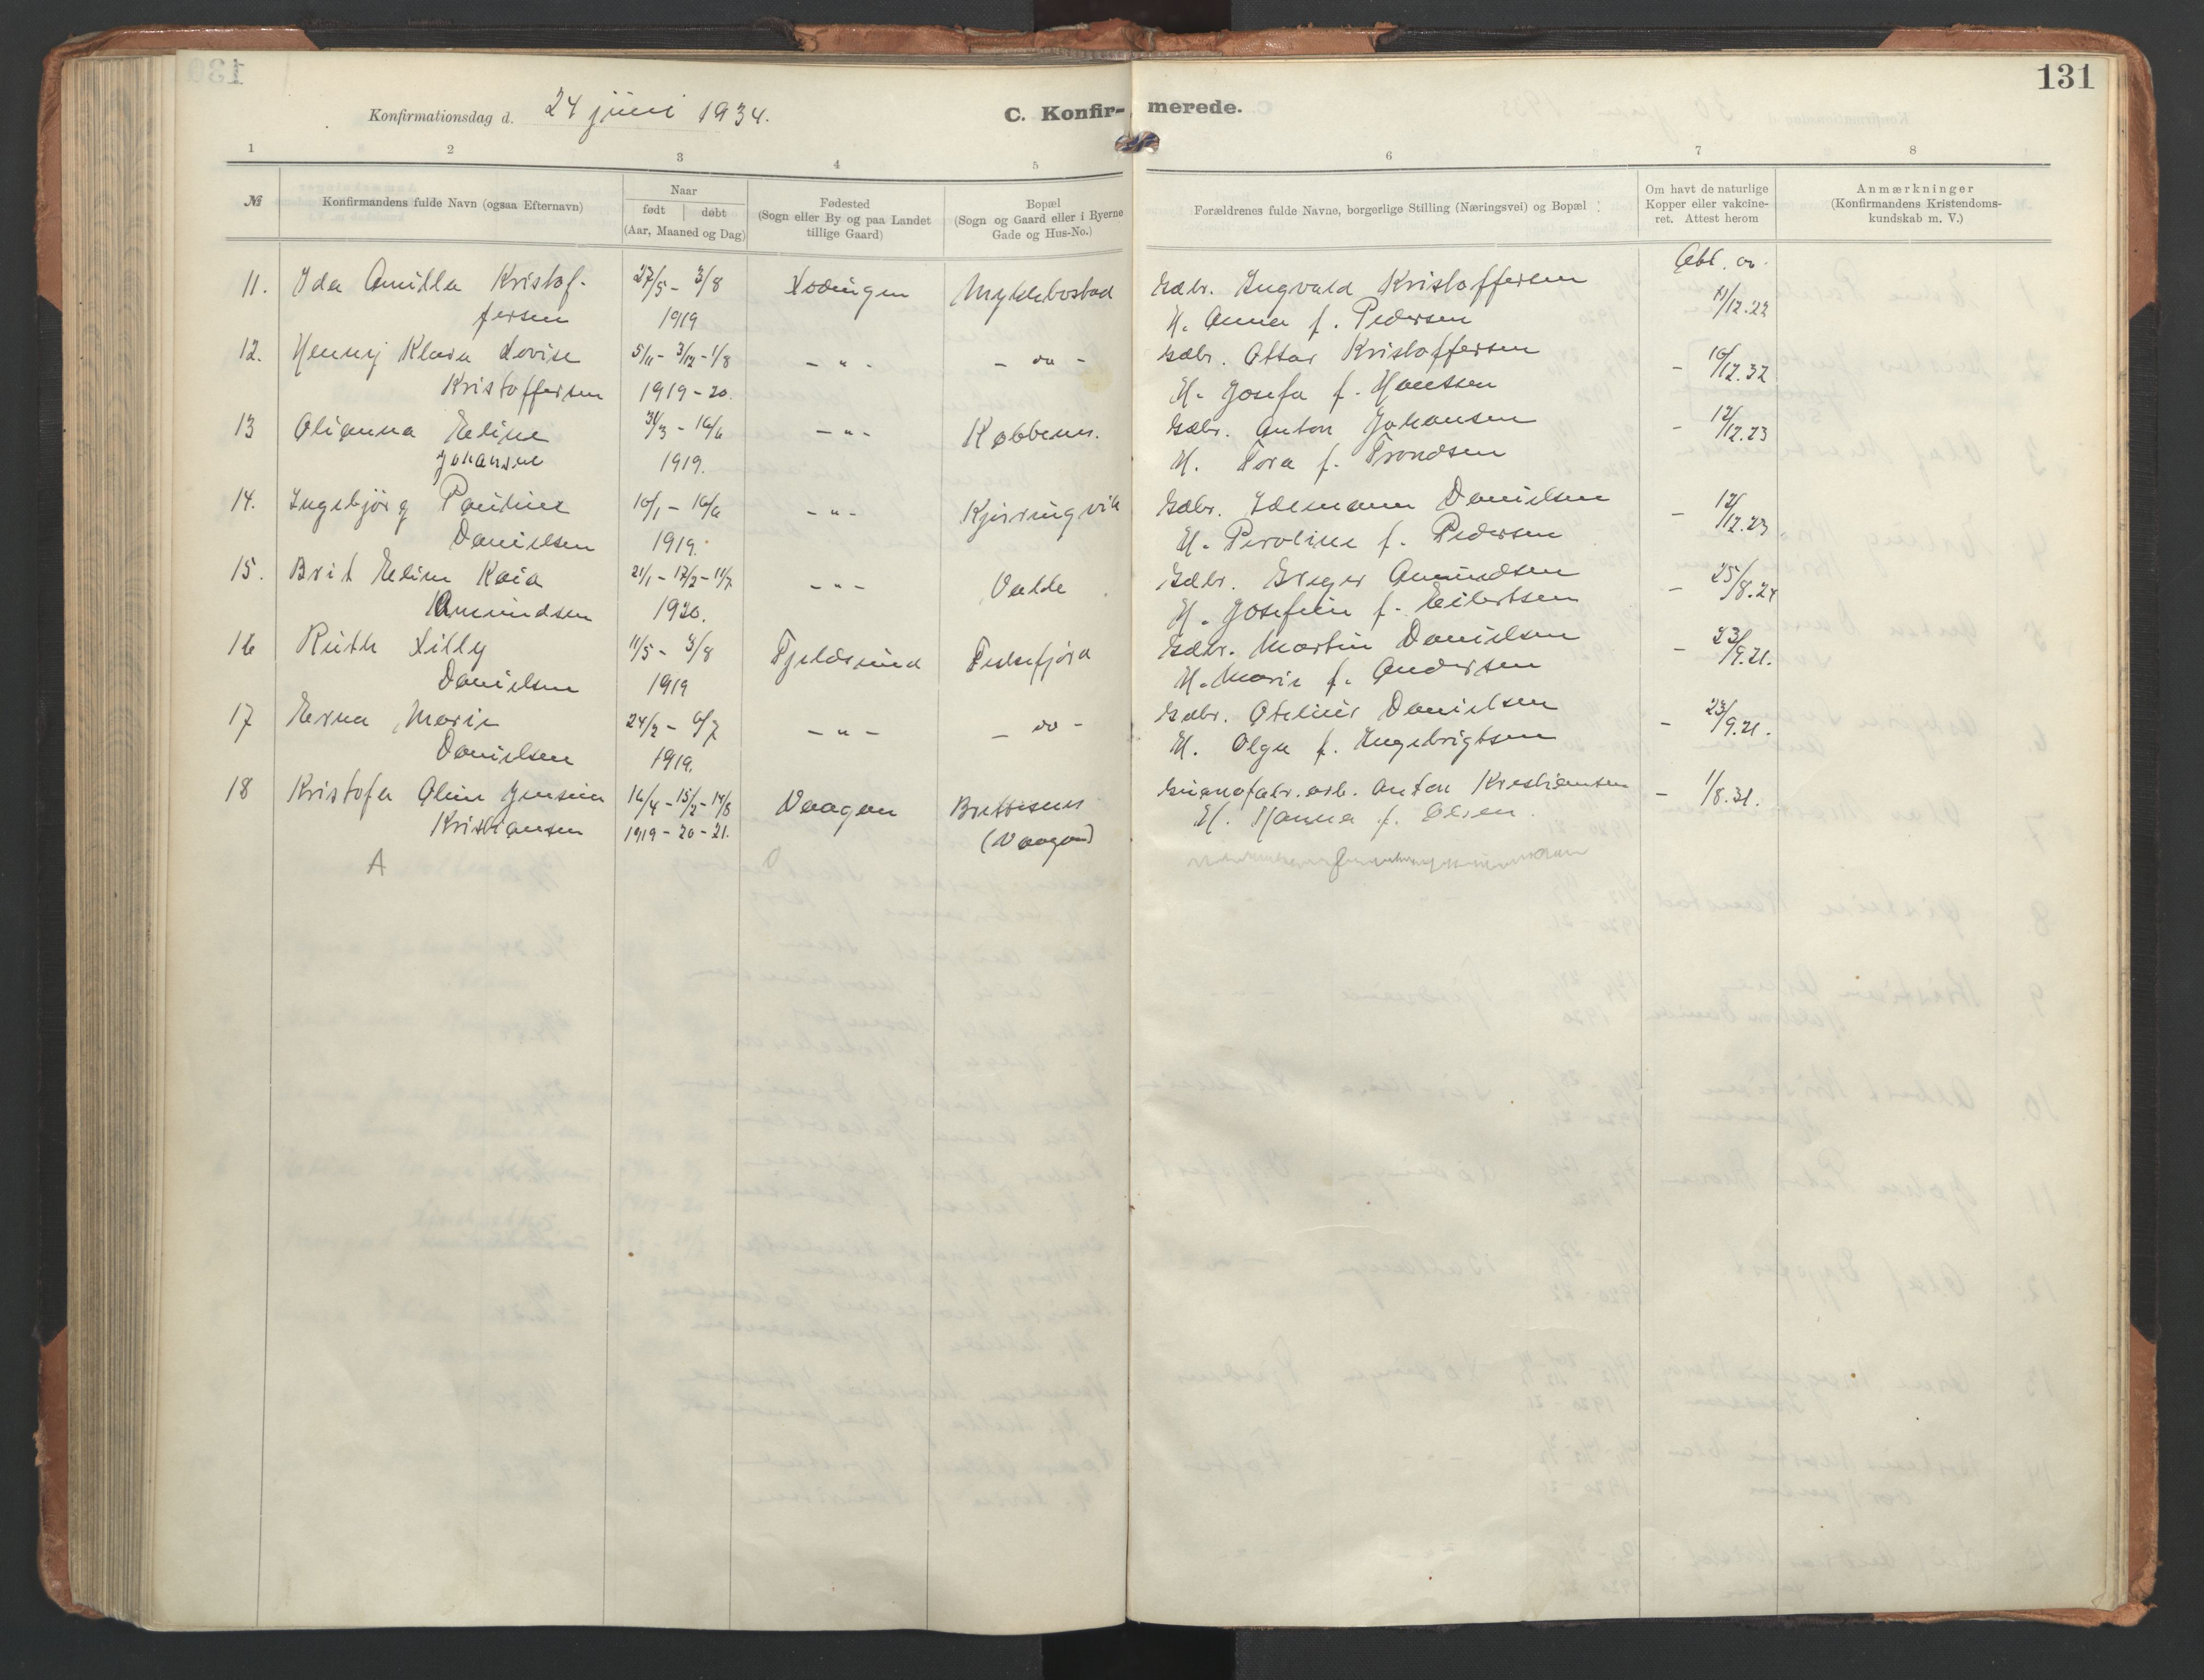 131
Konfirmationsdag d. 24 juni 1934.
C. Konfir- merede.
1 2 3 4 5 6 7 8
№ Konfirmandens fulde Navn (ogsaa Efternavn)
Naar
født døbt
(Aar, Maaned og Dag)
Fødested
(Sogn eller By og paa Landet
tillige Gaard)
Bopæl
(Sogn og Gaard eller i Byerne
Gade og Hus-No.)
Forældrenes fulde Navne, borgerlige Stilling (Næringsvei) og Bopæl
Om havt de naturlige
Kopper eller vakcine-
ret. Attest herom
Anmærkninger
(Konfirmandens Kristendoms-
kundskab m. V.)
11. Ida Amilla Kristof- 27/5 - 3/8 Lødingen Myklebostad Gbr. Ingvald Kristoffersen
fersen 1919 H. Anna f. Pedersen /12.22
12. Henny Klara Lovise 5/11 - 3/12 - 1/8 - " - - do - Gbr. Ottar Kristoffersen - 16/12.32
Kristoffersen 1919 - 20. H. Josefa f. Hanssen
13 Olianna Eline 31/3 - 16/6 - " - Kobbenes. Gbr. Anton Johansen - 12/12.23
Johansen 1919. H. Tora f. Trondsen
14. Ingebjørg Pauline 10/1 - 16/6 - " - Kjerringvik Gbr. Edemann Danielsen - 12/12.23
Danielsen 1919. H. Peroline f. Pedersen
15. Brit Eline Kaia 21/1 - 12/2 - 11/7 - " - Valde Gbr. Greger Amundsen - 25/8.24
Amundsen 1920. H. Josefine f. Eilertsen
16 Ruth Lilly 11/5 - 3/8 Fjeldsund Fiskefjord Gbr. Martin Danielsen - 23/9.21.
Danielsen 1919 H. Marie f. Andersen
17 Erna Marie 24/2 - 6/7 - " - - do - Gbr. Otelius Danielsen - 23/9.21.
Danielsen 1919. H. Olga f. Engebrigtsen
18 Kristofa Oline Jensine 16/4 - 15/2 - 14/8 Vaagan Brettesnes Guanofabr. arb. Anton Kristiansen - 1/8.31.
Kristiansen 1919 - 20 - 21. (Vaagan) H. Hanna f. Olsen
A